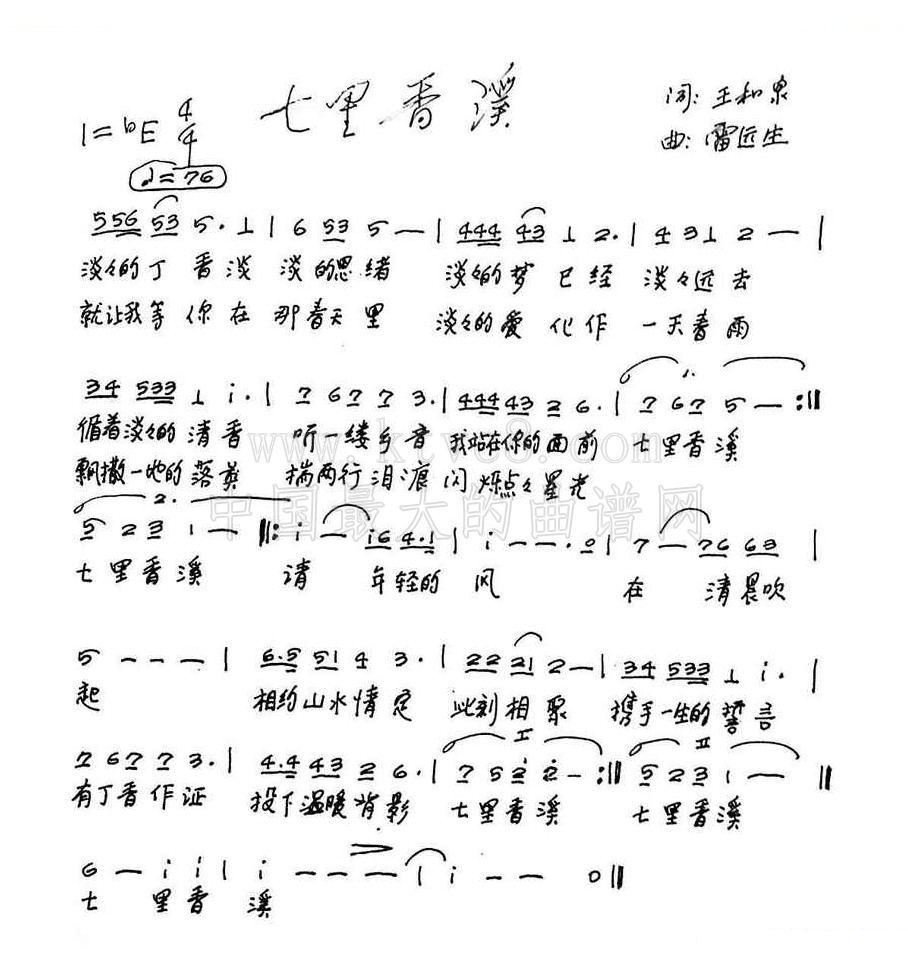 七里香溪
词: 王和泉
曲: 雷远生
1=bE 4/4
♩=76
556 53 5· 1 | 6 53 5 — | 444 43 1 2· | 4 31 2 — |
淡々的丁香淡 淡的思绪 淡々的梦已经 淡々远去
就让我等你在那春天里 淡々的爱化作一天春雨
34 533 1 i· | 7 67 7 3· | 444 43 2 6· | 1. 7 67 5 — :||
循着淡々的清香 听一缕乡音 我站在你的面前 七里香溪
飘撒一地的落英 揣两行泪痕 闪烁点々星光
www.ktv8.com
中国最大的曲谱网
2. 5 2 3 1 — ||: i — i6 4·1 | i — — ·0 | 7 — 76 63 |
七里香溪 请 年轻的风 在 清晨吹
5 — — — | 6·5 51 4 3· | 22 21 2 — | 34 533 1 i· |
起 相约山水情定 此刻相聚 携手一生的誓言
7 67 7 3· | 4·4 43 2 6· | I 7 5 2 2· — :|| II 5 2 3 1 — — ||
有丁香作证 投下温暖背影 七里香溪 七里香溪
6 — i i | i — — — | i — — 0 ||
七 里香 溪